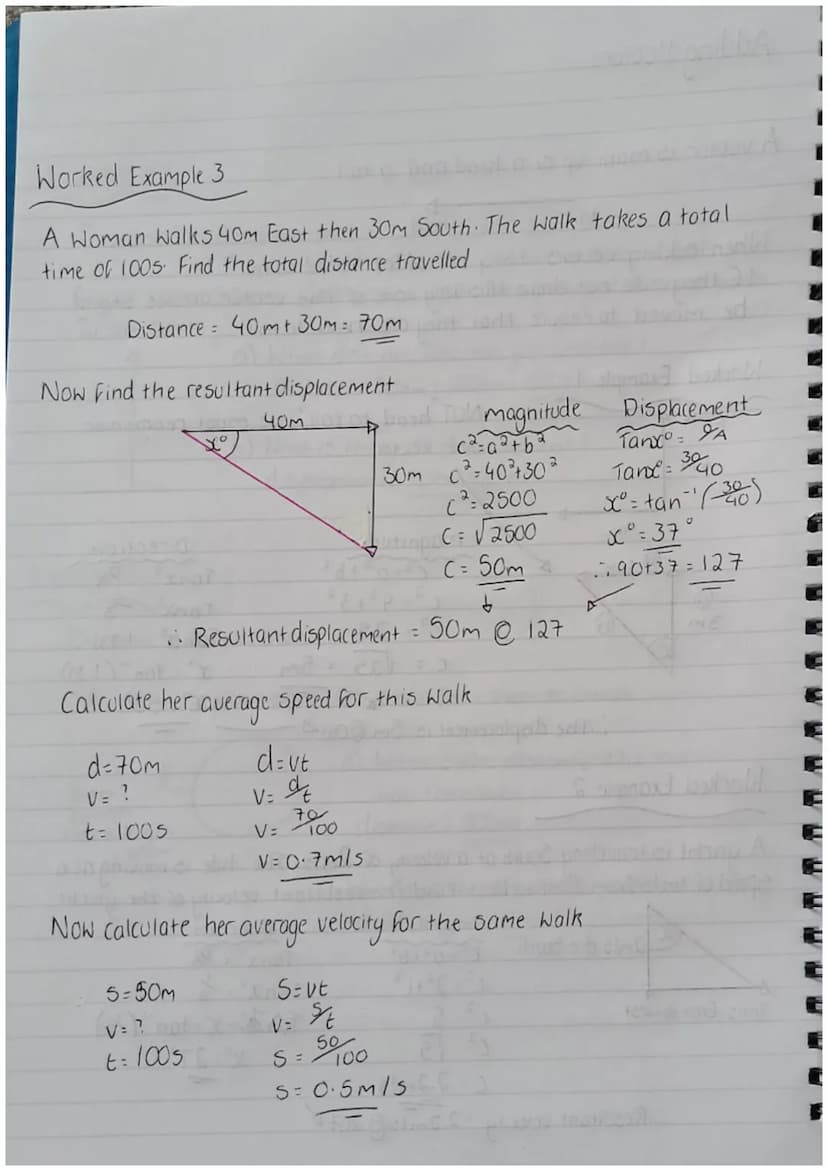 Worked Example 3
A Woman Walks 40m East then 30m South. The walk takes a total
time of 100s. Find the total distance travelled
Distance = 40m + 30m = 70m
Now find the resultant displacement
40m
x°
30m
magnitude
c²=a²+b²
c²=40²+30²
c²=2500
C=√2500
C= 50m
Displacement
Tanx° = O/A
Tanx° = 30/40
x° = tan⁻¹(30/40)
x° = 37°
∴ 90+37 = 127
∴ Resultant displacement = 50m @ 127
Calculate her average speed for this walk
d=70m
v= ?
t= 100s
d=vt
v= d/t
v= 70/100
v=0.7m/s
Now calculate her average velocity for the same walk
s=50m
v=?
t=100s
s=vt
v= s/t
s= 50/100
s= 0.5m/s